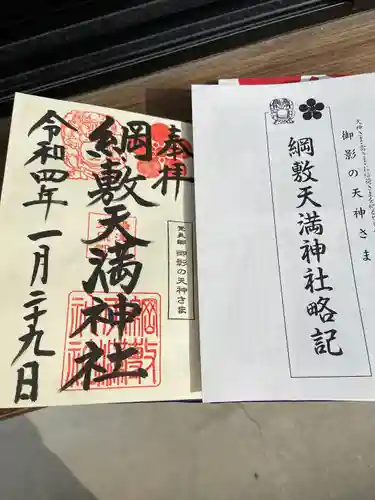 天神さま
御影の天神さま
綱敷天満神社略記
奉拝
綱敷天満神社
菅原公 御影の天神さま
令和四年一月二十九日
綱敷